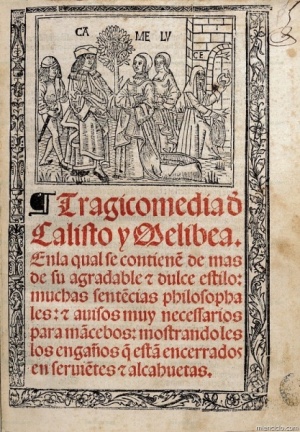 CA ME LV
CE
¶ Tragicomedia đ
Calisto y Melibea.
Enla qual se contienẽ de mas
de su agradable ⁊ dulce estilo:
muchas sentẽcias philosopha
les: ⁊ auisos muy necessarios
para mãcebos: mostrandoles
los engaños q̃ estã encerrados
en seruiẽtes ⁊ alcahuetas.